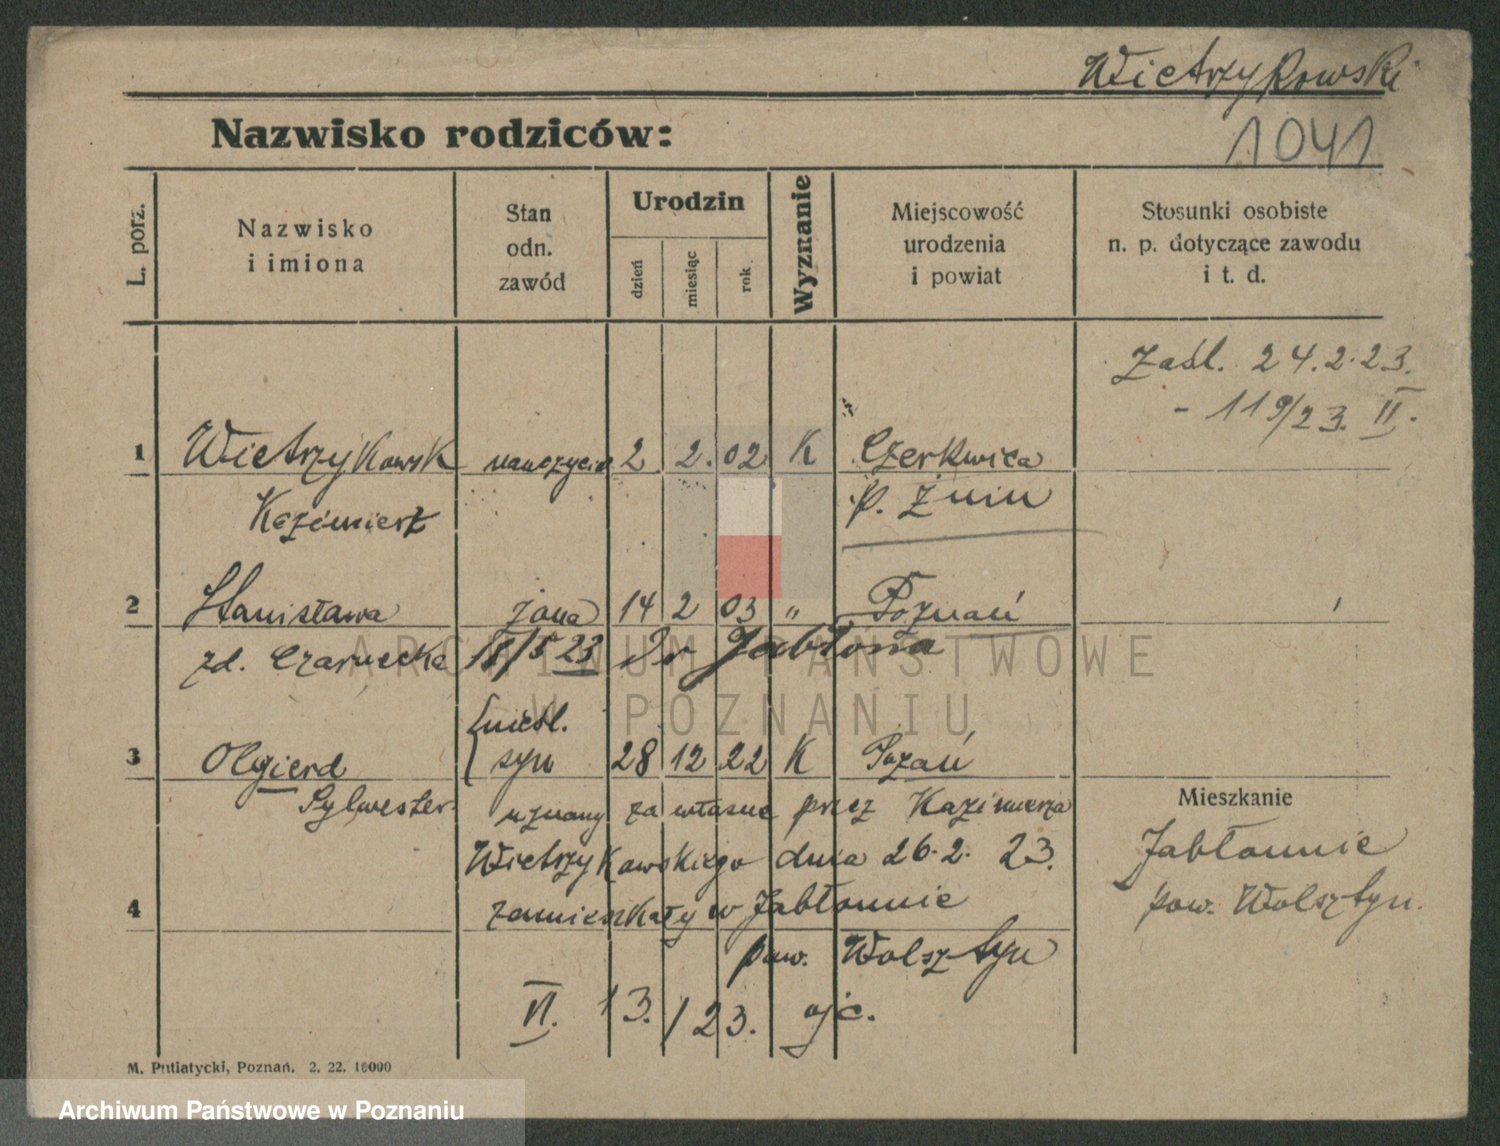 Wietrzykowski
Nazwisko rodziców:
1041
L. porz.
Nazwisko
i imiona
Stan
odn.
zawód
Urodzin
dzień
miesiąc
rok
Wyznanie
Miejscowość
urodzenia
i powiat
Stosunki osobiste
n. p. dotyczące zawodu
i t. d.
Zaśl. 24.2.23.
- 119/23. II.
1 Wietrzykowsk nauczyciel 2. 2. 02 K Czerkwica
Kazimierz p. Żnin
2 Stanisława żona 14 2 03 " Poznań
zd. Czarnecka 18/5 23 Jabłona
{nieśl.
3 Olgierd syn 28 12 22 K Pozań
Sylwester uznany za własne przez Kazimierza
Wietrzykowskiego dnia 26.2. 23.
4 zamieszkały w Jabłonnie
pow. Wolsztyn
VI. 13./23. ojc.
Mieszkanie
Jabłonnie
pow. Wolsztyn.
M. Putiatycki, Poznań. 2. 22. 16000
ARCHIWUM PAŃSTWOWE
W POZNANIU
Archiwum Państwowe w Poznaniu